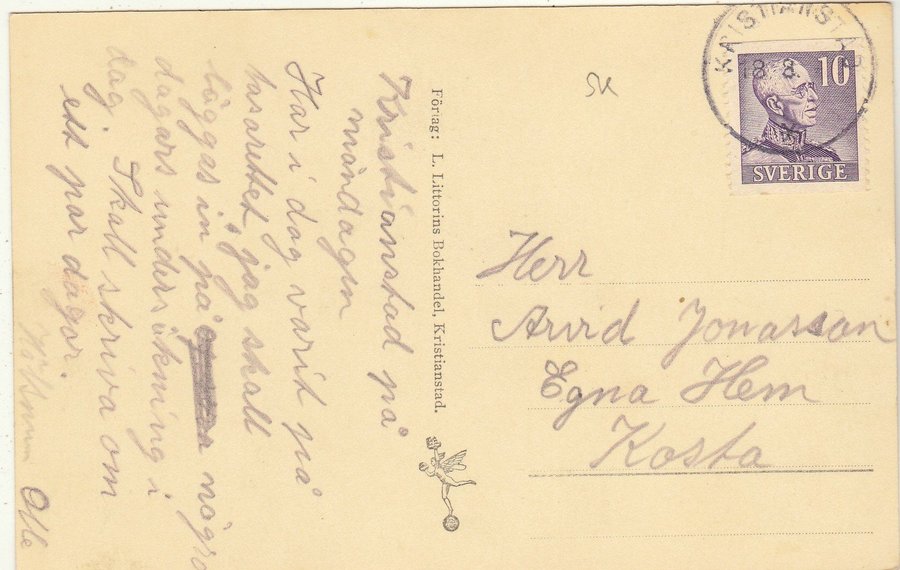 Kristianstad på
måndagen
Har i dag varit på
lasarettet, jag skall
läggas in på några
dagars undersökning i
dag. Skall skriva om
ett par dagar.
Olle
Förlag: L. Littorins Bokhandel, Kristianstad.
SK
KRISTIANSTAD
18. 8.
10
SVERIGE
Herr
Arvid Jonasson
Egna Hem
Kosta